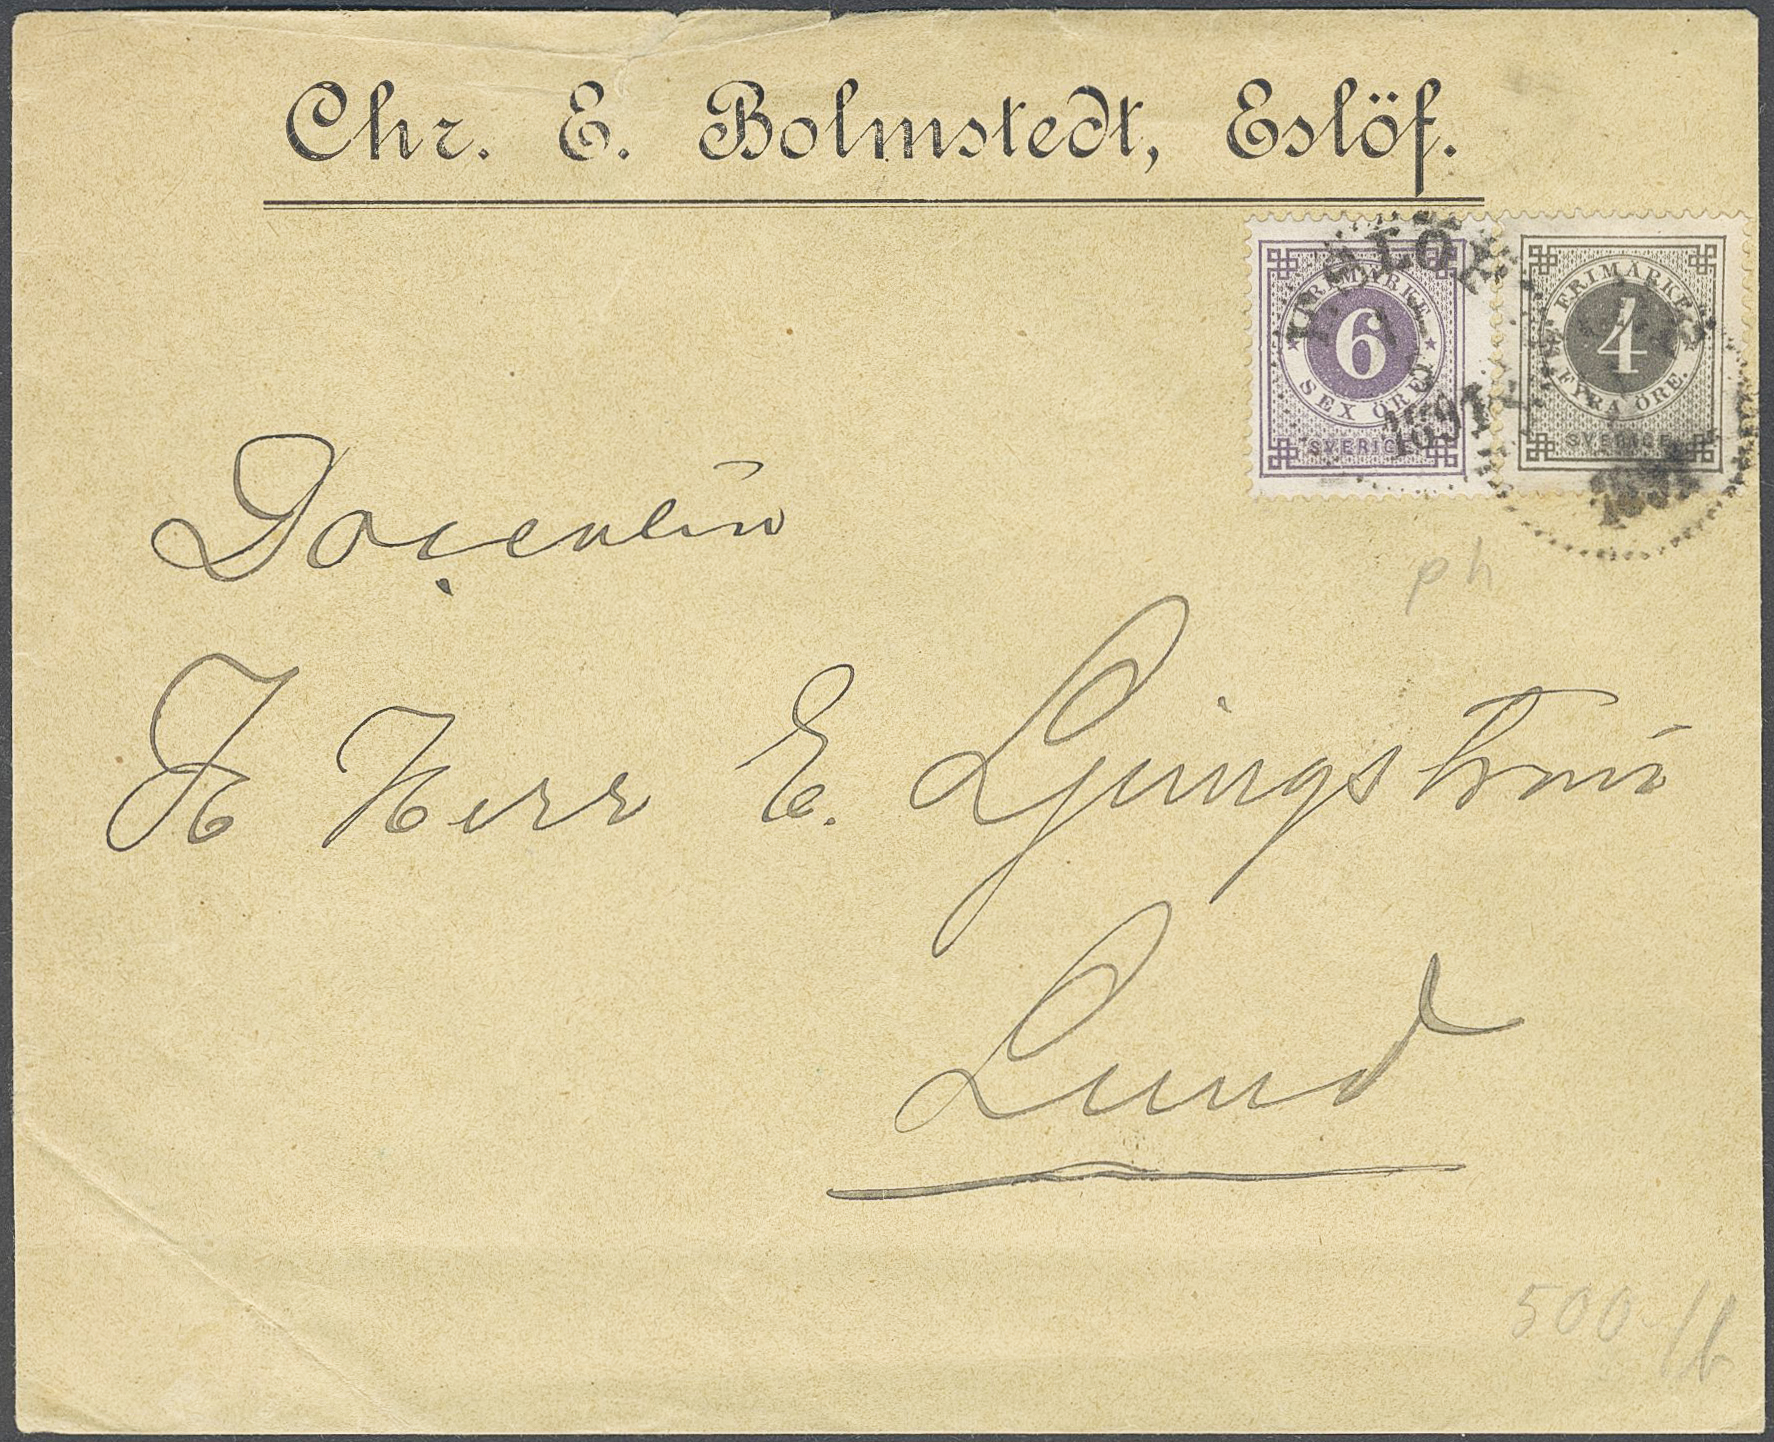 Chr. E. Bolmstedt, Eslöf.
FRIMÄRKE
6
SEX ÖRE
SVERIGE
FRIMÄRKE
4
FYRA ÖRE.
SVERIGE
ESLÖF
1891
Docenten
ph
H Herr E. Ljungström
Lund
500